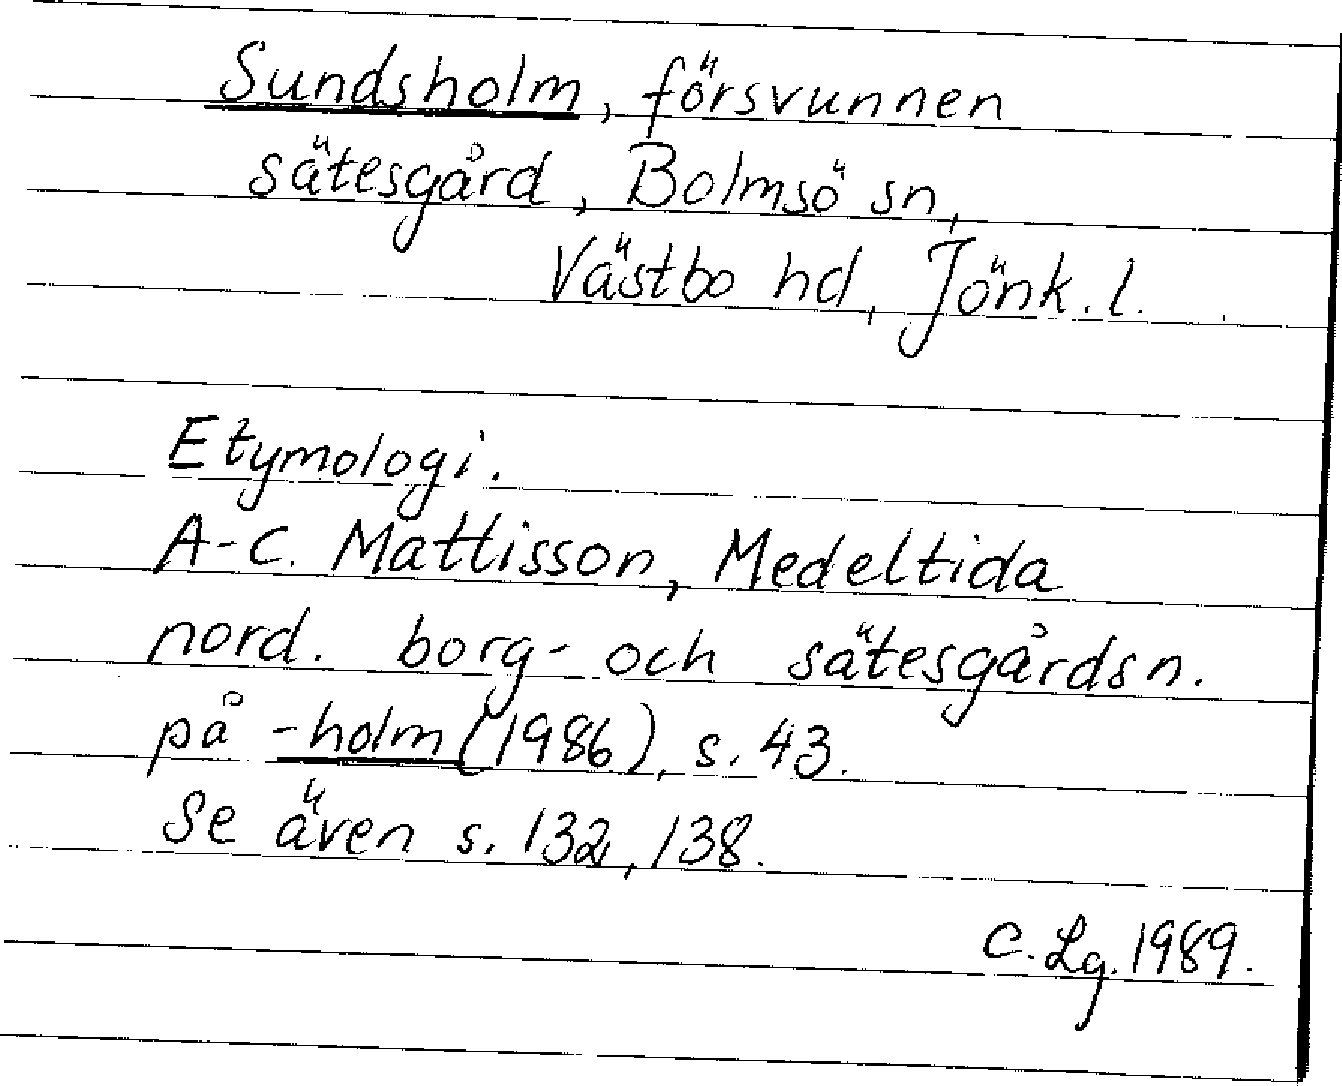 Sundsholm, försvunnen
sätesgård, Bolmsö sn,
Västbo hd, Jönk. l.
Etymologi.
A-C. Mattisson, Medeltida
nord. borg- och sätesgårdsn.
på -holm (1986), s. 43.
Se även s. 132, 138.
C. Lg. 1989.